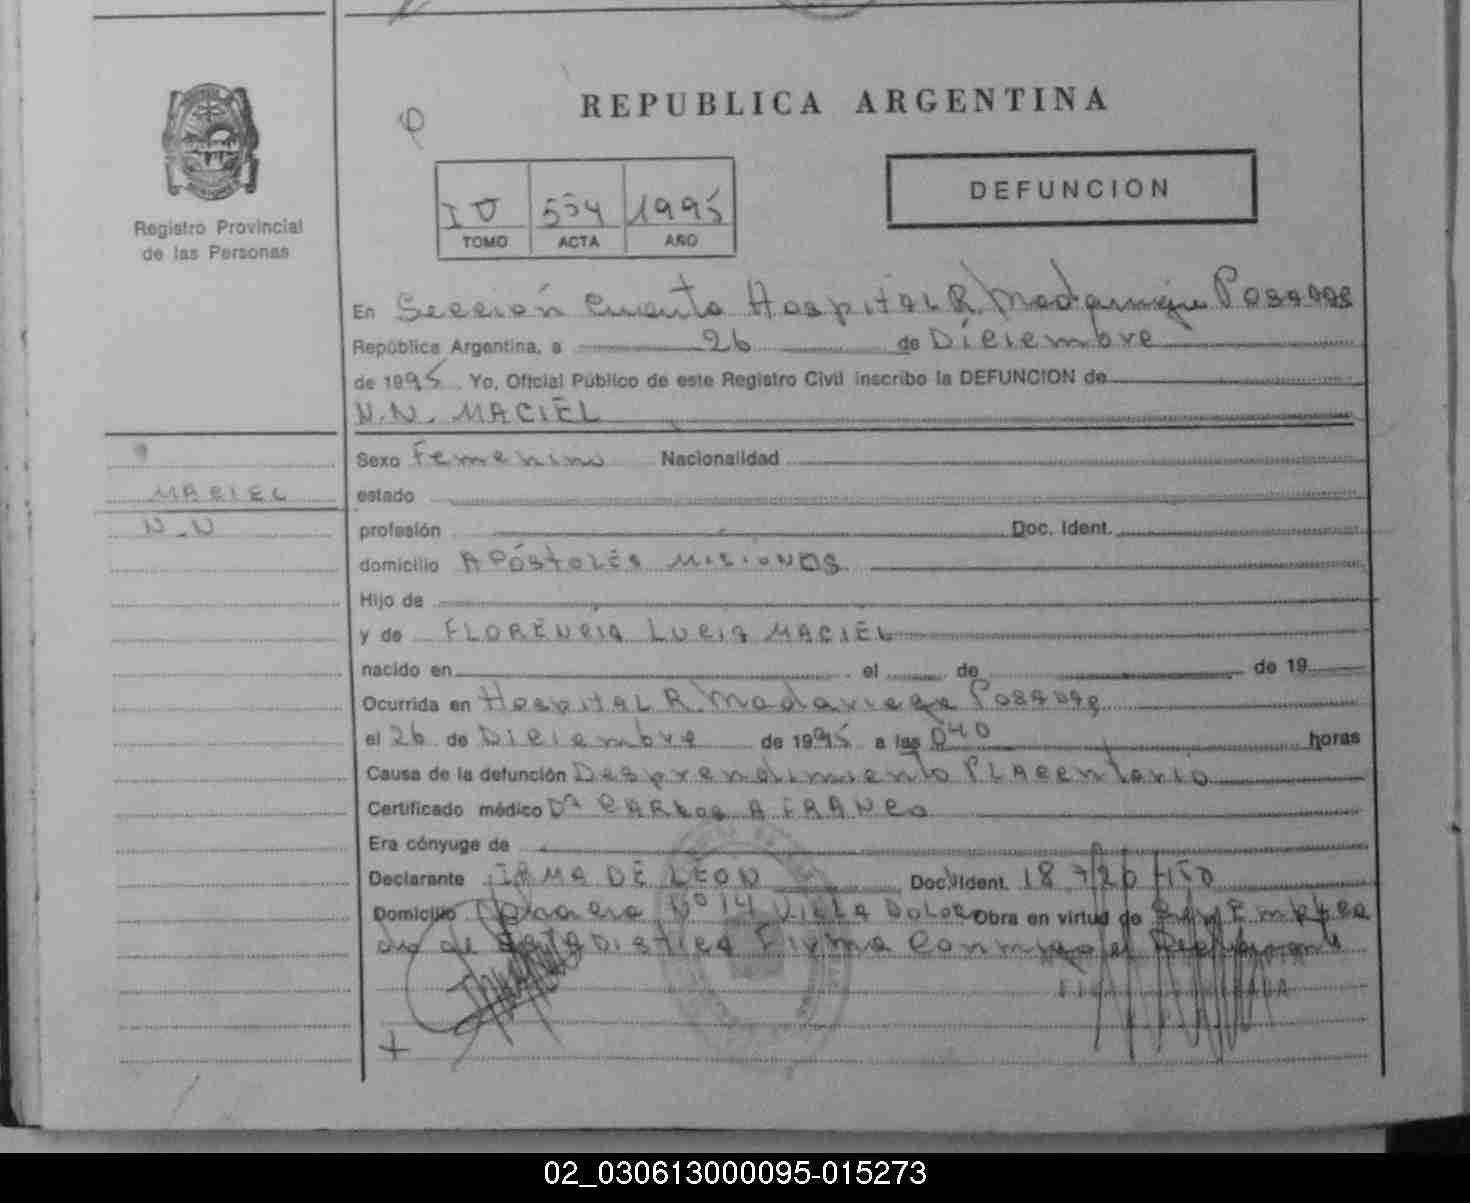 REPUBLICA ARGENTINA
Registro Provincial
de las Personas
TOMO ACTA AÑO
534 1995
DEFUNCION
En Sección Cuarta Hospital R. Madariaga Posadas
República Argentina, a 26 de Diciembre
de 1995. Yo, Oficial Público de este Registro Civil inscribo la DEFUNCION de
N.N. MACIEL
MACIEL
N.N
Sexo Femenino Nacionalidad
estado
profesión Doc. Ident.
domicilio APÓSTOLES MISIONES
Hijo de
y de FLORENCIA LUCIA MACIEL
nacido en el de de 19
Ocurrida en Hospital R. Madariaga Posadas
el 26 de Diciembre de 1995 a las 040 horas
Causa de la defunción Desprendimiento PLAcentario
Certificado médico Dr CARLOS A FRANCO
Era cónyuge de
Declarante IRMA DE LEON Doc. Ident. 18 726 150
Domicilio Nº 14 VILLA DOLORES Obra en virtud de Emplea
da de Estadistica Firma Conmigo el
02_030613000095-015273